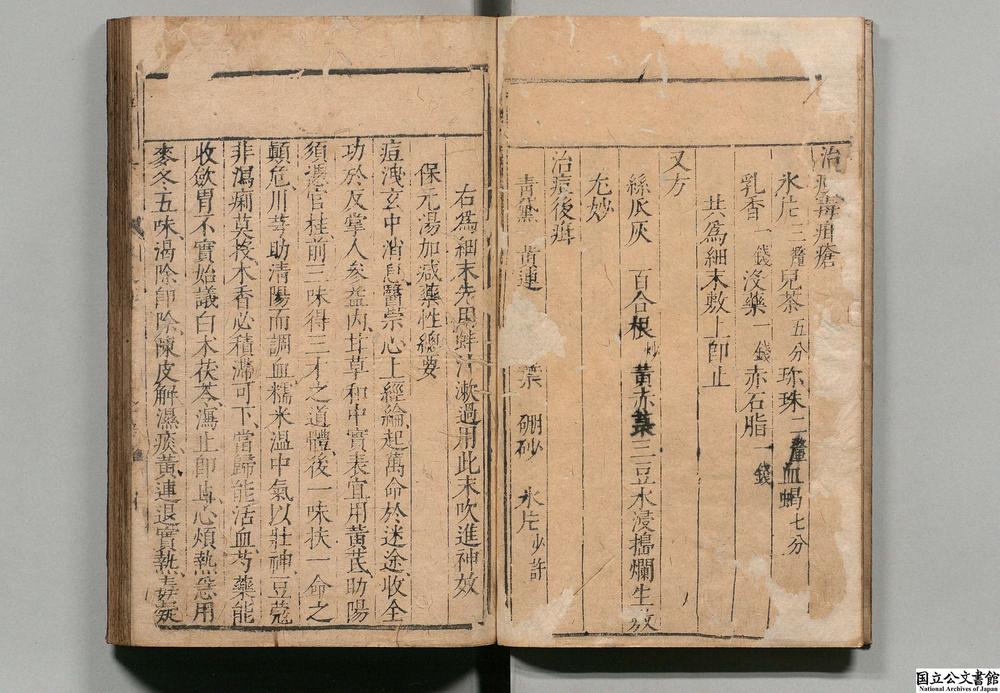 治痘毒疳瘡
氷片三釐兒茶五分珎珠二釐血蝎七分
乳香一錢沒藥一錢赤石脂一錢
共爲細末敷上即止
又方
絲瓜灰 百合根炒 黃赤 三豆水浸搗爛生敷
尤妙
治痘後疳
青黛 黃連 硼砂 氷片少許
右爲細末先用 汁漱過用此末吹進神效
保元湯加減藥性總要
痘洩玄中消息醫崇心上經綸起萬命於迷途收全
功於反掌人參益內甘草和中實表宜用黃芪助陽
須憑官桂前三味得三才之道體後一味扶一命之
顛危川芎助清陽而調血糯米温中氣以壯神豆蔻
非瀉痢莫投木香必積滯可下當歸能活血芍藥能
收斂胃不實始議白术茯苓瀉止即止心煩熱急用
麥冬五味渴除即除陳皮解濕痰黃連退實熱毒凝
国立公文書館
National Archives of Japan